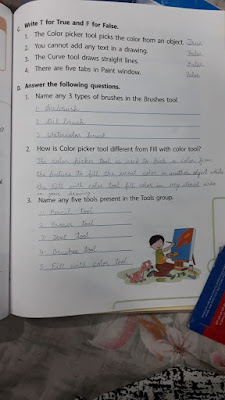 C. Write T for True and F for False.
1. The Color picker tool picks the color from an object. True
2. You cannot add any text in a drawing. False
3. The Curve tool draws straight lines. False
4. There are five tabs in Paint window. False
D. Answer the following questions.
1. Name any 3 types of brushes in the Brushes tool.
1. Airbrush
2. Oil brush
3. Watercolor brush
2. How is Color picker tool different from Fill with color tool?
The color picker tool is used to pick a color from
the picture to fill the same color in another object while
the Fill with color tool fill color in any closed area
in your drawing
3. Name any five tools present in the Tools group.
1. Pencil tool
2. Eraser tool
3. Text tool
4. Brushes tool
5. Fill with color tool